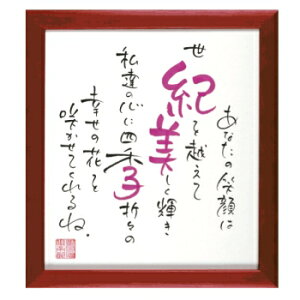 あなたの笑顔は
世紀を越えて
美しく輝き
私達の心に四季折々の
幸せの花を
咲かせてくれるね。